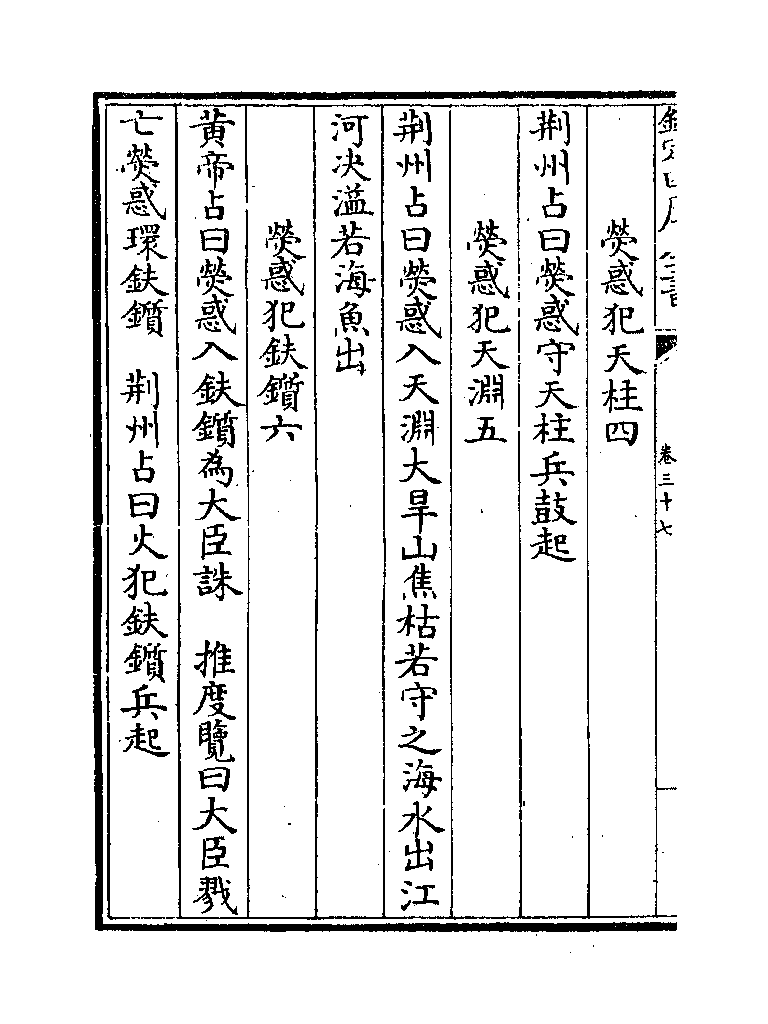 欽定四庫全書
卷三十七
熒惑犯天柱四
荆州占曰熒惑守天柱兵鼓起
熒惑犯天淵五
荆州占曰熒惑入天淵大旱山焦枯若守之海水出江
河决溢若海魚出
熒惑犯鈇鑕六
黄帝占曰熒惑入鈇鑕為大臣誅　推度覽曰大臣戮
亡熒惑環鈇鑕　荆州占曰火犯鈇鑕兵起